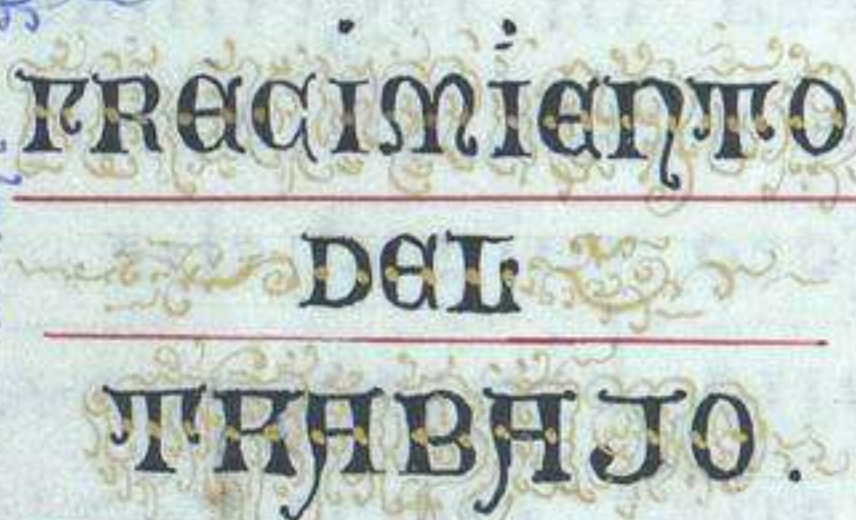 FRECIMIENTO
DEL
TRABAJO.